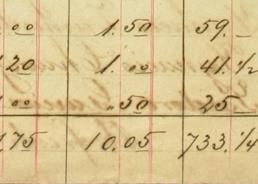 .00 1.50 59. –
.20 1.00 41.½
.00 .50 25 –
.75 10.05 733.¼